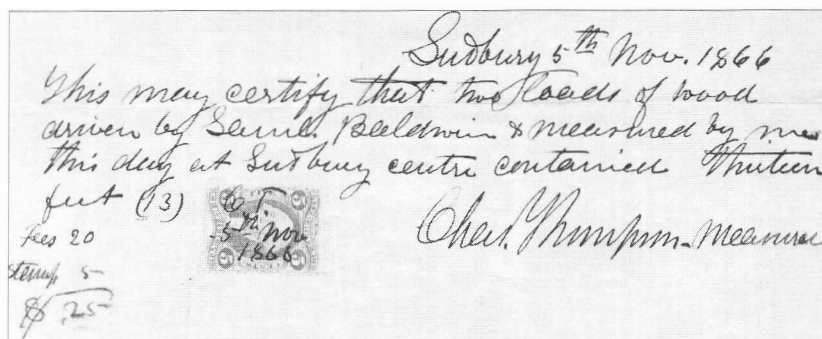 Sudbury 5th Nov. 1866
This may certify that two loads of wood
driven by Saml. Baldwin & measured by me
this day at Sudbury centre contained thirteen
feet (13)
C T
5th Nov
1866
5 5
5 5
Fees 20
Stamp 5
$ .25
Chas. Thompson - Measurer